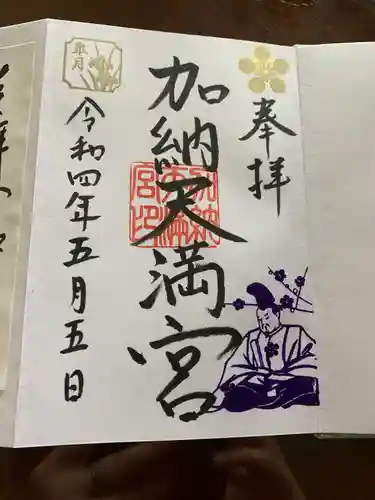 奉拝
加納天満宮
加納天満宮印
令和四年五月五日
皐月